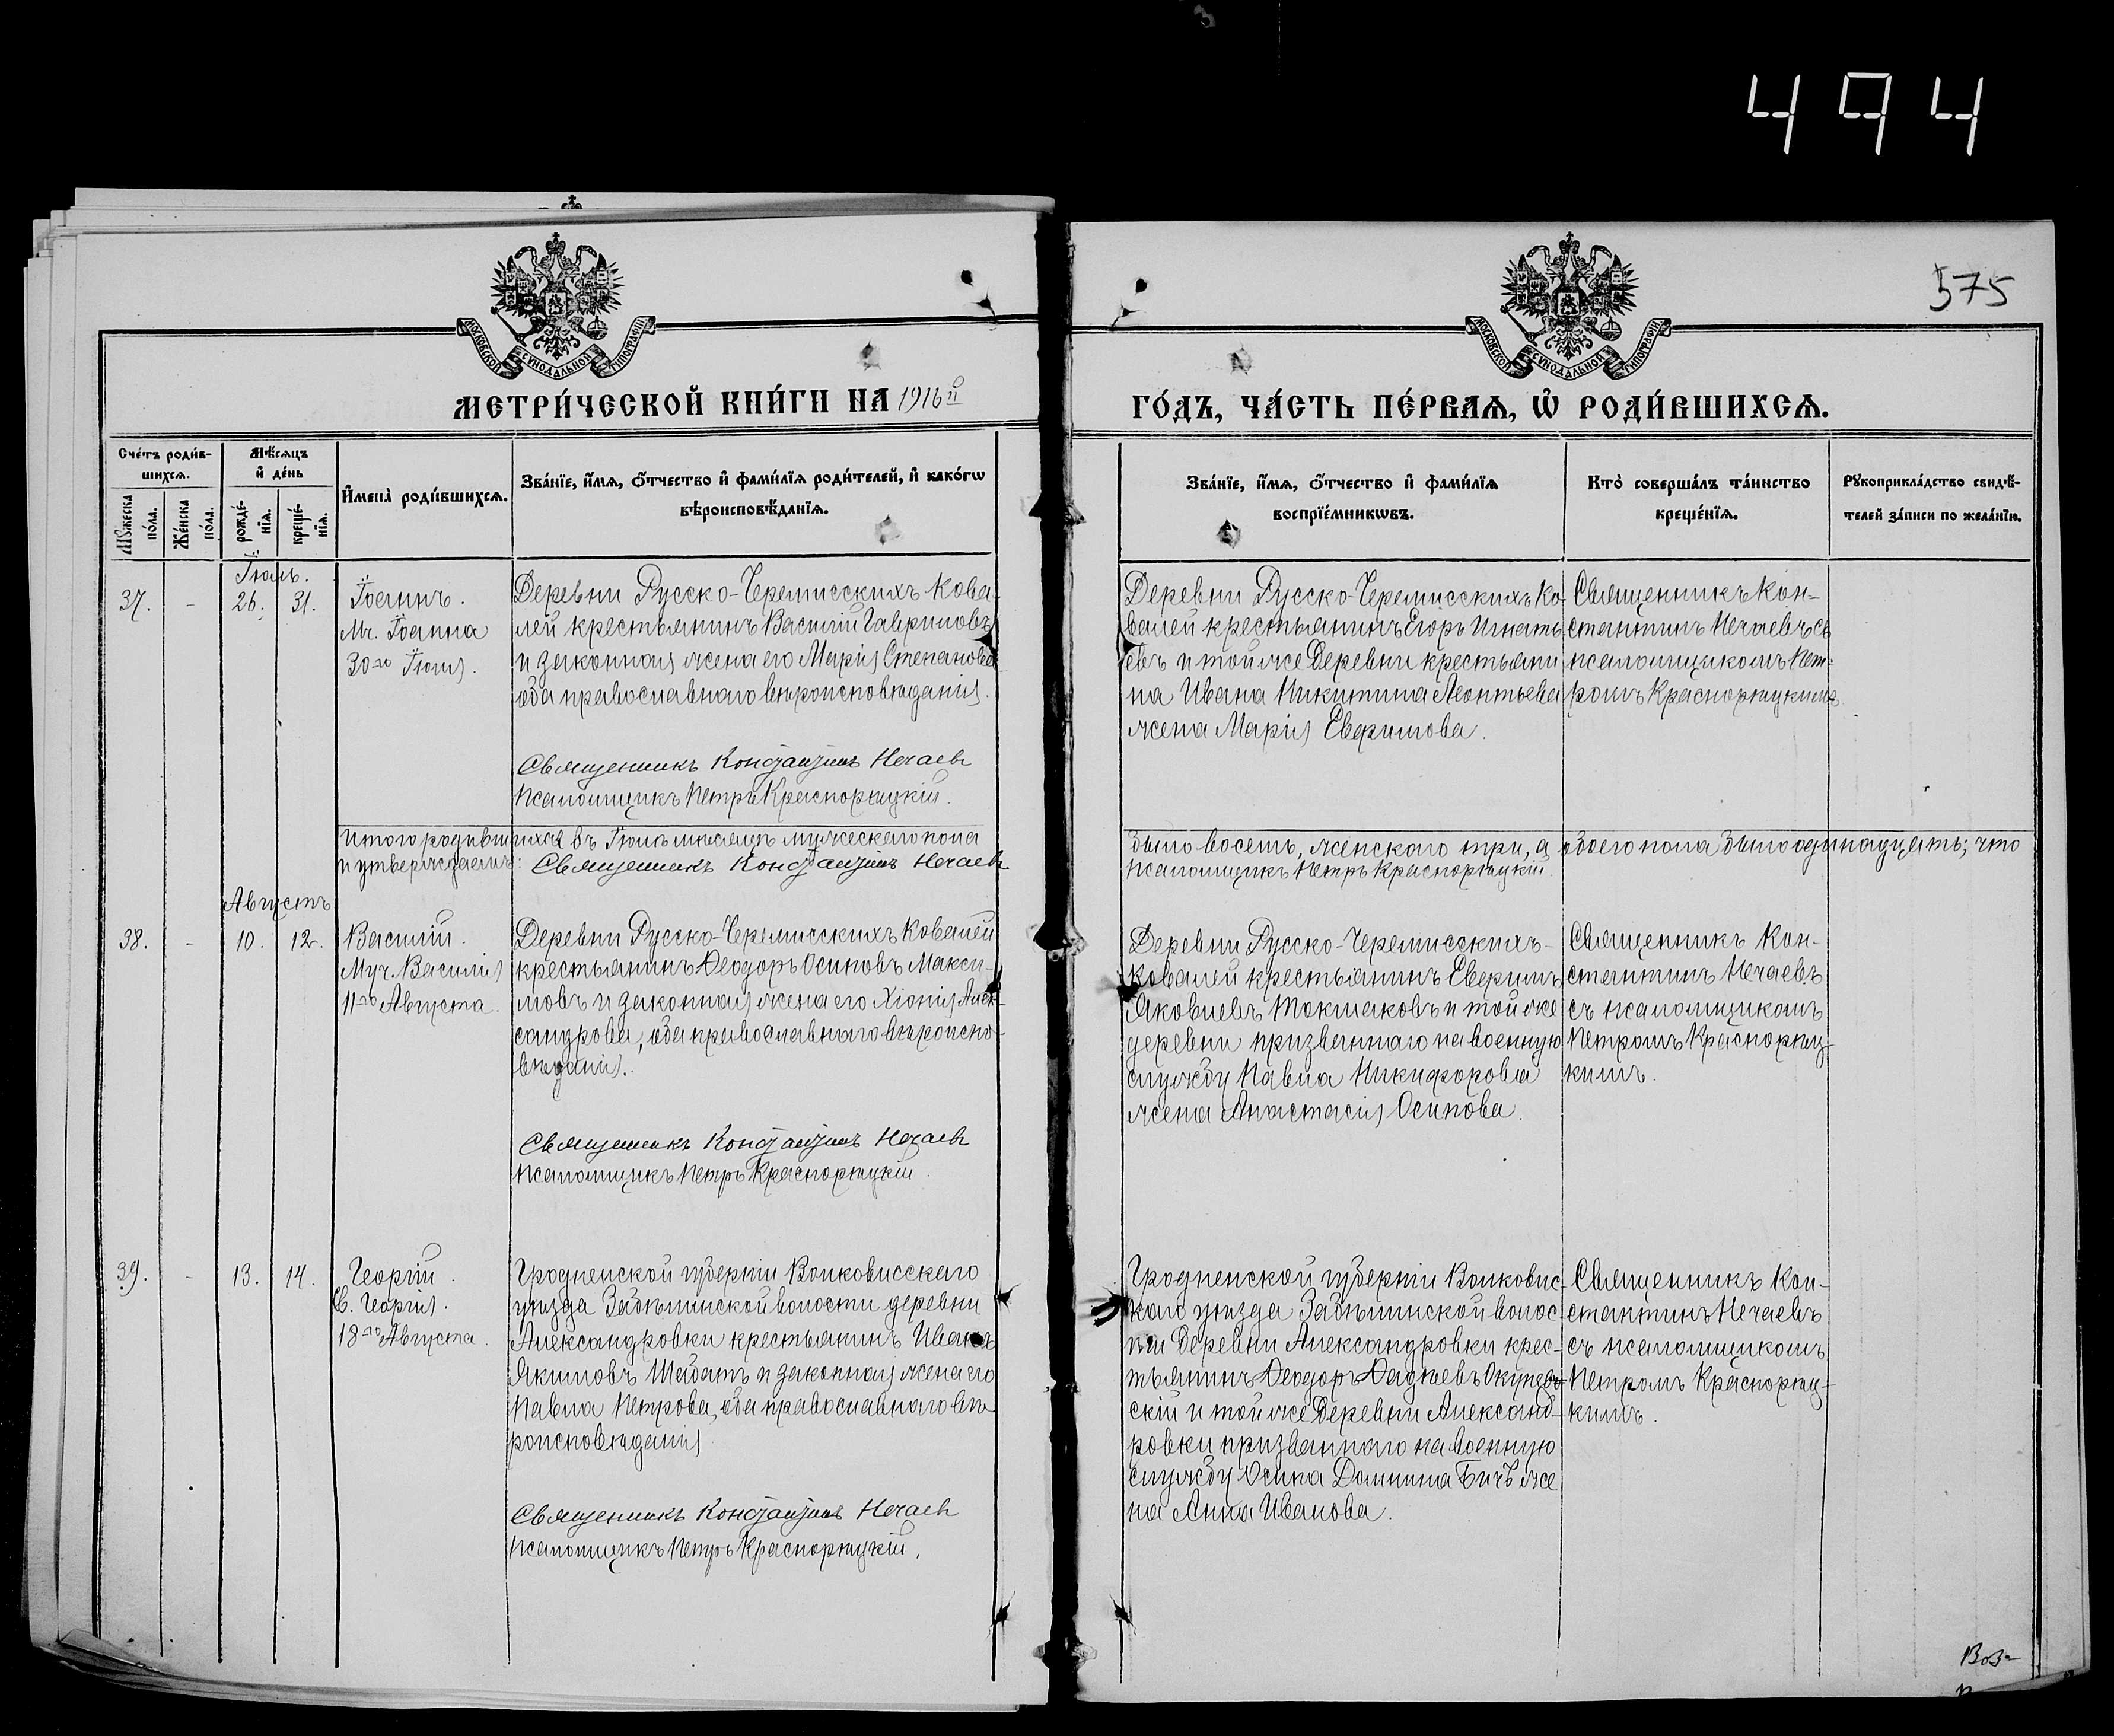 494
575
МОСКОВСКОЙ СѴНОДАЛЬНОЙ ТИПОГРАФІИ
МОСКОВСКОЙ СѴНОДАЛЬНОЙ ТИПОГРАФІИ
МЕТРИ́ЧЕСКОЙ КНИ́ГИ НА 1916й
ГО́ДЪ, ЧА́СТЬ ПЕ́РВАѦ, Ѡ҆ РОДИ́ВШИХСѦ.
Сче́тъ роди́в-
шихсѧ.
Мꙋ́жеска по́ла.
Же́нска по́ла.
Мѣ́сѧцъ
и҆ де́нь
рожде́-
нїѧ.
креще́-
нїѧ.
И҆мена̀ роди́вшихсѧ.
Зва́нїе, и҆́мѧ, ѻ҆́тчество и҆ фами́лїѧ роди́телей, и҆ како́гѡ
вѣроисповѣ́данїѧ.
Зва́нїе, и҆́мѧ, ѻ҆́тчество и҆ фами́лїѧ
воспрїе́мникѡвъ.
Кто̀ соверша́лъ та́инство
креще́нїѧ.
Рꙋкоприкла́дство свидѣ́-
телей за́писи по жела́нїю.
Іюль.
37.
-
26.
31.
Іоаннъ.
Мч. Іоанна
30го Іюля.
Деревни Русско-Черемисскихъ Кова-
лей крестьянинъ Василій Гавриловъ
и законная жена его Марія Степанова
оба православнаго вѣроисповѣданія.
Священникъ Константинъ Нечаевъ
Псаломщикъ Петръ Краснорѣцкій.
Деревни Русско-Черемисскихъ Ко-
валей крестьянинъ Егоръ Игнать-
евъ и той же деревни крестьяни
на Ивана Никитина Леонтьева
жена Марія Евфимова.
Священникъ Кон-
стантинъ Нечаевъ съ
псаломщикомъ Пет-
ромъ Краснорѣцкимъ
Итого родившихся въ Іюлѣ мѣсяцѣ мужескаго пола
было восемь, женскаго три, а обоего пола было одинадцать; что
и утверждаемъ: Священникъ Константинъ Нечаевъ
Псаломщикъ Петръ Краснорѣцкій.
Августъ
38.
-
10.
12.
Василій.
Муч. Василія
11го Августа.
Деревни Русско-Черемисскихъ Ковалей
крестьянинъ Ѳеодоръ Осиповъ Макси-
мовъ и законная жена его Хіонія Алек-
сандрова, оба православнаго вѣроиспо-
вѣданія.
Священникъ Константинъ Нечаевъ
Псаломщикъ Петръ Краснорѣцкій.
Деревни Русско-Черемисскихъ-
Ковалей крестьянинъ Евфимъ
Яковлевъ Токмаковъ и той же
деревни призваннаго на военную
службу Павла Никифорова
жена Анастасія Осипова.
Священникъ Кон-
стантинъ Нечаевъ
съ псаломщикомъ
Петромъ Краснорѣц-
кимъ.
39.
-
13.
14.
Георгій.
Св. Георгія.
18го Августа.
Гродненской губерніи Волковисскаго
уѣзда Забѣлинской волости деревни
Александровки крестьянинъ Иванъ
Якимовъ Шабатъ и законная жена его
Павла Петрова, оба православнаго вѣ-
роисповѣданія.
Священникъ Константинъ Нечаевъ
Псаломщикъ Петръ Краснорѣцкій.
Гродненской губерніи Волковис-
каго уѣзда Забѣлинской волос-
ти деревни Александровки крес-
тьянинъ Ѳеодоръ Фадѣевъ
скій и той же деревни Александ-
ровки призваннаго на военную
службу Осипа Домнина Бичъ же
на Анна Иванова.
Священникъ Кон-
стантинъ Нечаевъ
съ псаломщикомъ
Петромъ Краснорѣц-
кимъ.